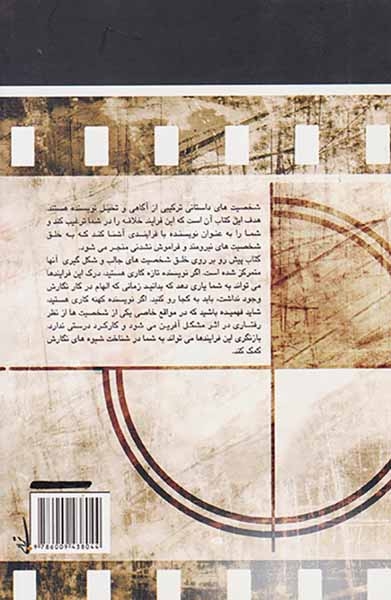 شخصیت های داستانی ترکیبی از آگاهی و تخیل نویسنده هستند
هدف این کتاب آن است که این فرایند خلاقه را در شما ترغیب کند و
شما را به عنوان نویسنده با فرایندی آشنا کند که به خلق
شخصیت های نیرومند و فراموش نشدنی منجر می شود.
کتاب پیش رو بر روی خلق شخصیت های جالب و شکل گیری آنها
متمرکز شده است. اگر نویسنده تازه کاری هستید، درک این فرایندها
می تواند به شما یاری دهد که بدانید زمانی که الهام در کار نگارش
وجود نداشت، باید به کجا رو کنید. اگر نویسنده کهنه کاری هستید،
شاید فهمیده باشید که در مواقع خاصی یکی از شخصیت ها از نظر
رفتاری در اثر مشکل آفرین می شود و کارکرد درستی ندارد.
بازنگری این فرایندها می تواند به شما در شناخت شیوه های نگارش
کمک کند.
9 786009 438044